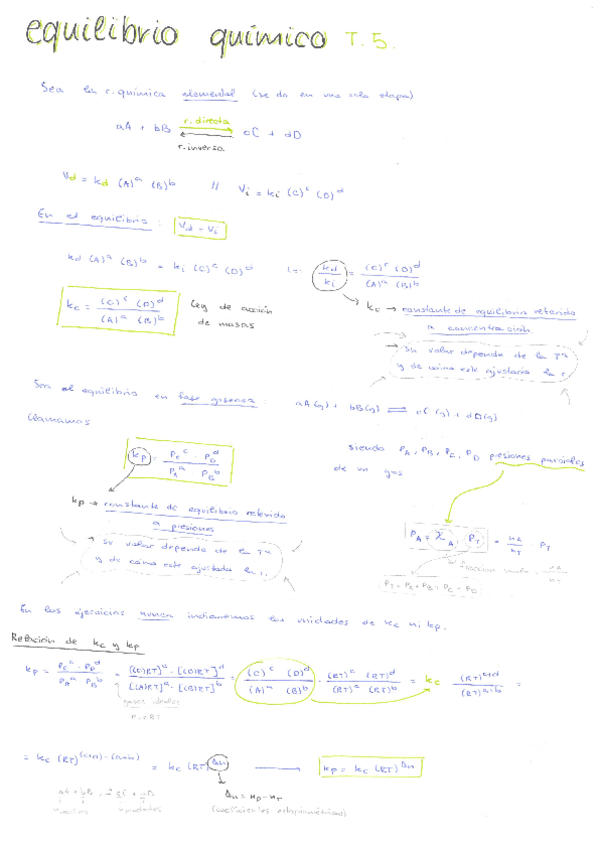 equilibrio químico T.5.
Sea la r. química elemental (se da en una sola etapa)
aA + bB ⇌ cC + dD
r. directa
r. inversa
Vd = kd (A)^a (B)^b // Vi = ki (C)^c (D)^d
En el equilibrio: Vd = Vi
kd (A)^a (B)^b = ki (C)^c (D)^d
kd/ki = (C)^c (D)^d / (A)^a (B)^b
kc → constante de equilibrio referido a concentración
kc = (C)^c (D)^d / (A)^a (B)^b
Ley de acción de masas
→ Su valor depende de la Tª
y de cómo esté ajustada la r.
el equilibrio en fase gaseosa: aA(g) + bB(g) ⇌ cC(g) + dD(g)
llamamos
kp = Pc^c · PD^d / PA^a PB^b
siendo PA, PB, PC, PD presiones parciales
de un gas
kp → constante de equilibrio referido
a presiones
→ Su valor depende de la Tª
y de cómo esté ajustada la r.
PA = XA · PT = nA/nT PT
PT = PA + PB + PC + PD
En los ejercicios nunca indicaremos las unidades de kc ni kp.
Relación de kc y kp
kp = Pc^c · PD^d / PA^a PB^b = [(C)RT]^c · [(D)RT]^d / [(A)RT]^a · [(B)RT]^b = (C)^c (D)^d / (A)^a (B)^b · (RT)^c (RT)^d / (RT)^a (RT)^b = kc (RT)^c+d / (RT)^a+b =
gases ideales
= kc (RT)^(c+d) - (a+b) = kc (RT)^Δn → kp = kc (RT)^Δn
Δn = np - nr
(coeficientes estequiométricos)